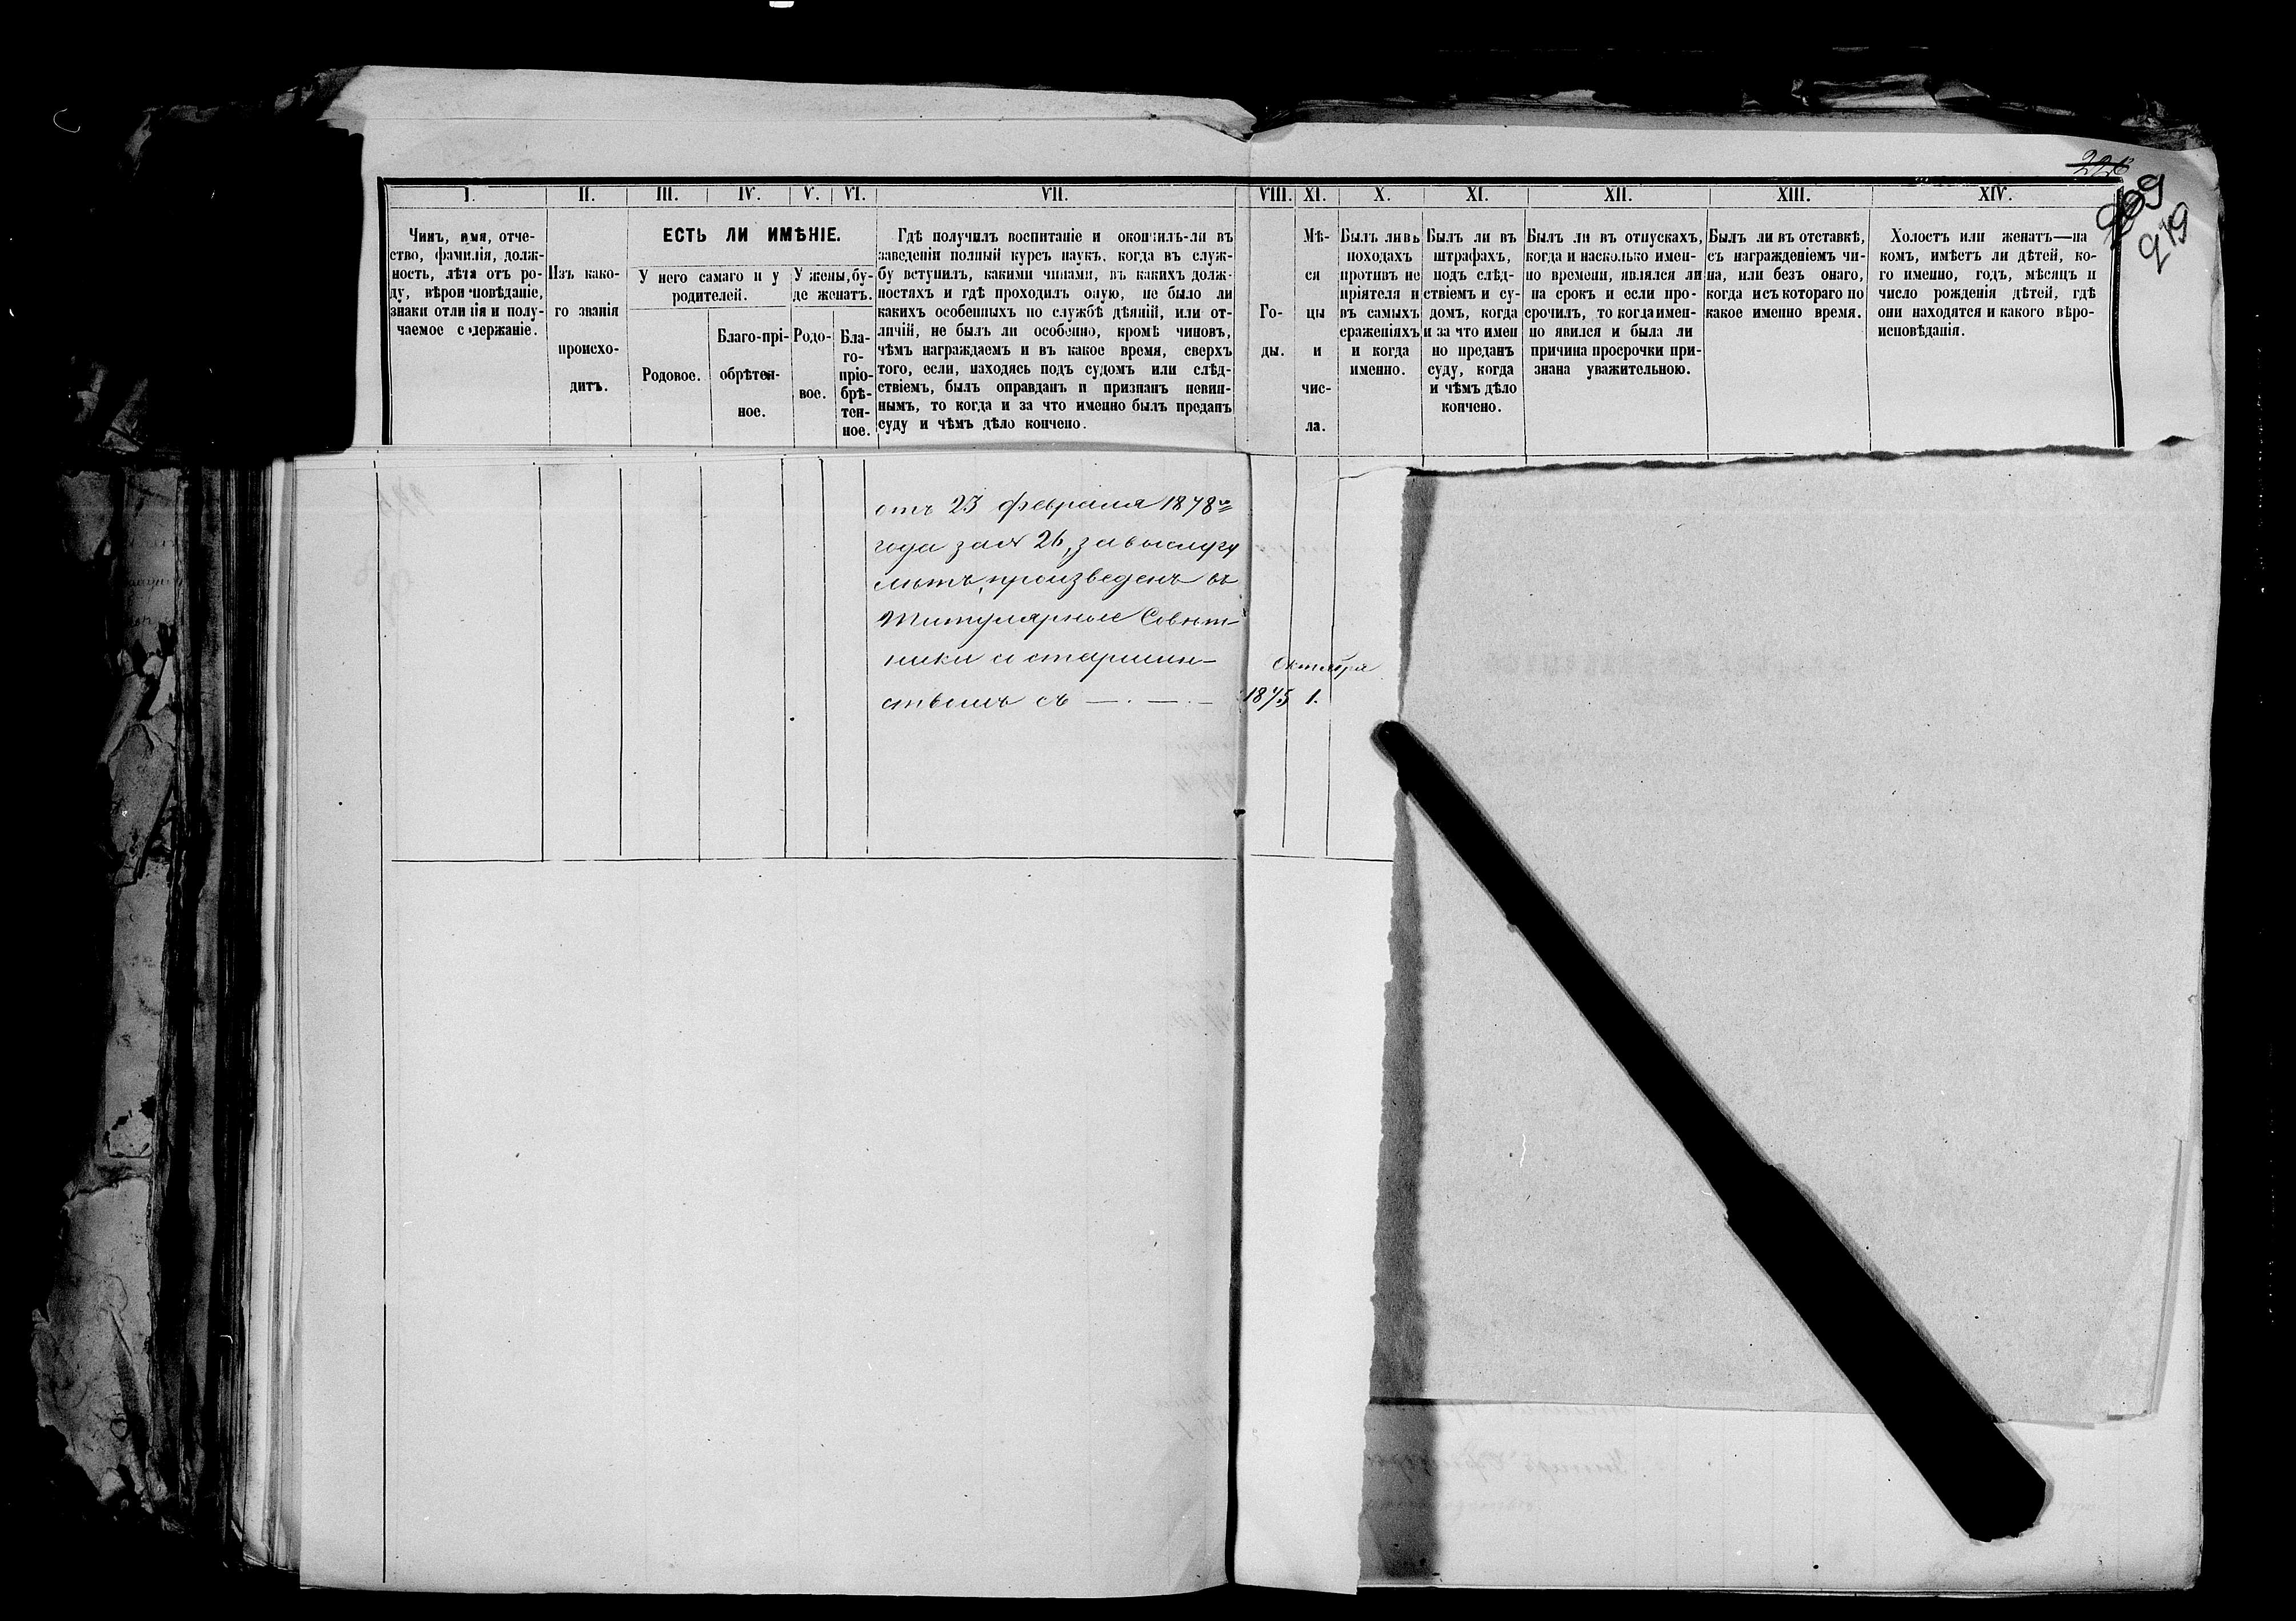 226
269
219
I.
Чинъ, имя, отче-
ство, фамилія, долж-
ность, лѣта отъ ро-
ду, вѣроисповѣданіе,
знаки отличія и полу-
чаемое содержаніе.
II.
Изъ како-
го званія
происхо-
дитъ.
III. IV. V. VI.
ЕСТЬ ЛИ ИМѢНІЕ.
У него самаго и у
родителей.
У жены, бу-
де женатъ.
Родовое.
Благо-прі-
обрѣтен-
ное.
Родо-
вое.
Бла-
го-
пріо-
брѣ-
тен-
ное.
VII.
Гдѣ получилъ воспитаніе и окончилъ-ли въ
заведеніи полный курсъ наукъ, когда въ служ-
бу вступилъ, какими чинами, въ какихъ долж-
ностяхъ и гдѣ проходилъ оную, не было ли
какихъ особенныхъ по службѣ дѣяній, или от-
личій, не былъ ли особенно, кромѣ чиновъ,
чѣмъ награждаемъ и въ какое время, сверхъ
того, если, находясь подъ судомъ или слѣд-
ствіемъ, былъ оправданъ и признанъ невин-
нымъ, то когда и за что именно былъ преданъ
суду и чѣмъ дѣло кончено.
VIII.
Го-
ды.
XI.
Мѣ-
ся
цы
и
чис-
ла.
X.
Былъ ли въ
походахъ
противъ не
пріятеля и
въ самыхъ
сраженіяхъ
и когда
именно.
XI.
Былъ ли въ
штрафахъ,
подъ слѣд-
ствіемъ и су-
домъ, когда
и за что имен
но преданъ
суду, когда
и чѣмъ дѣло
кончено.
XII.
Былъ ли въ отпускахъ,
когда и насколько имен-
но времени, являлся ли
на срокъ и если про-
срочилъ, то когда имен-
но явился и была ли
причина просрочки при-
знана уважительною.
XIII.
Былъ ли въ отставкѣ,
съ награжденіемъ чи-
на, или безъ онаго,
когда и съ котораго по
какое именно время.
XIV.
Холостъ или женатъ—на
комъ, имѣетъ ли дѣтей, ко-
го именно, годъ, мѣсяцъ и
число рожденія дѣтей, гдѣ
они находятся и какого вѣро-
исповѣданія.
отъ 23 февраля 1878го
года за № 26, за выслугу
лѣтъ, произведенъ въ
Титулярные Совѣт-
ники со старшин-
ствомъ съ —.—.—
Октября
1875 1.